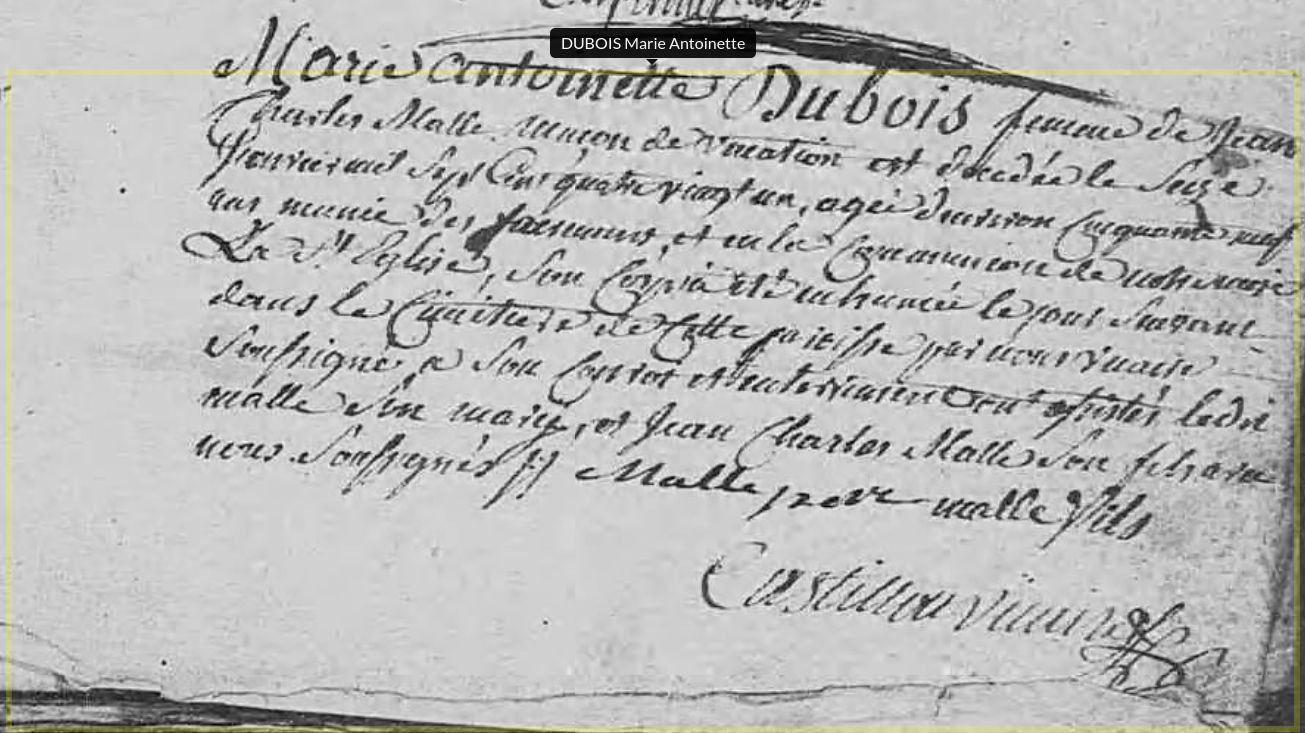 DUBOIS Marie Antoinette
Marie antoinette Dubois femme de Jean
Charles Malle maçon de vocation est decedée le Seize
Janvier mil Sept Cent quatre vingt un, agée denviron Cinquante neuf
ans munie des sacremens, et en la Communion de notre mere
La Ste Eglise, Son Corps a eté inhumé le jour Suivant
dans le Cimitiere de Cette paroisse par nous vicaire
Soussigné a Son Convoi et enterrement ont assistés ledit
malle Son mary, et Jean Charles Malle Son fils avec
nous Soussignés Malle pere malle fils